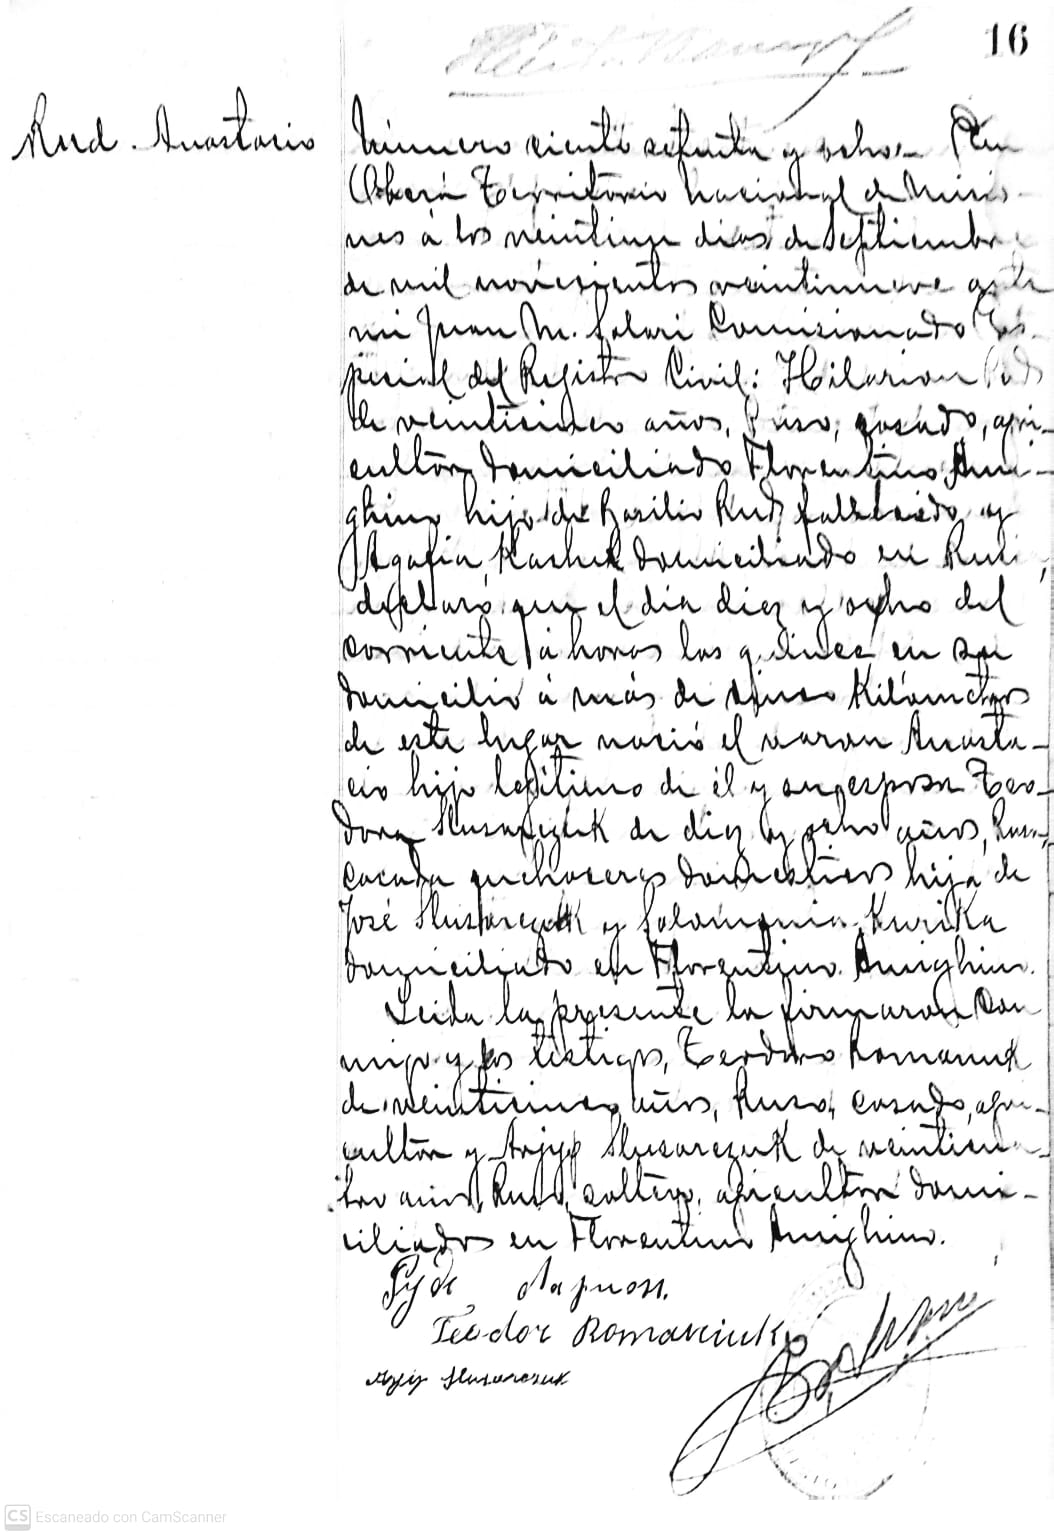 16
Rud Anastacio
Número ciento setenta y ocho. En
Oberá Territorio Nacional de Misio-
nes á los veintinue dias de Septiembre
de mil novecientos veintinueve ante
mi Juan M. Solari Comisionado Es-
pecial del Registro Civil: Hilarion Rud
de veinticinco años, Ruso, casado, agri-
cultor domiciliado Florentino Ami-
ghino hijo de Basilio Rud, fallecido y
Agafia Kashuk domiciliado en Rusia,
declaró que el dia diez y ocho del
corriente á horas las quince en su
domicilio á más de cinco Kilómetros
de este lugar nació el varon Anasta-
cio hijo legitimo de él y su esposa Teo-
dora Slusarczuk de diez y ocho años, Rusa,
casada, quehaceres domesticos hija de
José Slusarczuk y Salomonia Kurika
domiciliado en Florentino Amighino.
Leida la presente la firmaron con
migo y los testigos, Teodoro Romanuk
de veinticinco años, Ruso, casado, agri-
cultor y Arjyp Slusarczuk de veinticua
tro años, Ruso, soltero, agricultor domi-
ciliados en Florentino Amighino.
Рудь
Teodor Romaniuk
Arjip Slusarczuk
CS Escaneado con CamScanner